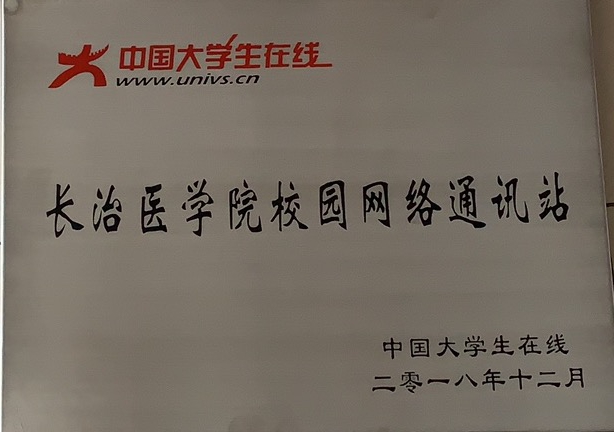 中国大学生在线
www.univs.cn
长治医学院校园网络通讯站
中国大学生在线
二零一八年十二月